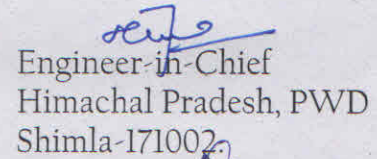 Engineer-in-Chief
Himachal Pradesh, PWD
Shimla-171002.